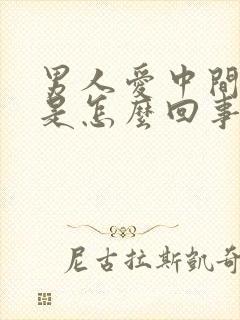 男人愛中間
是怎麼回事
尼古拉斯凱奇